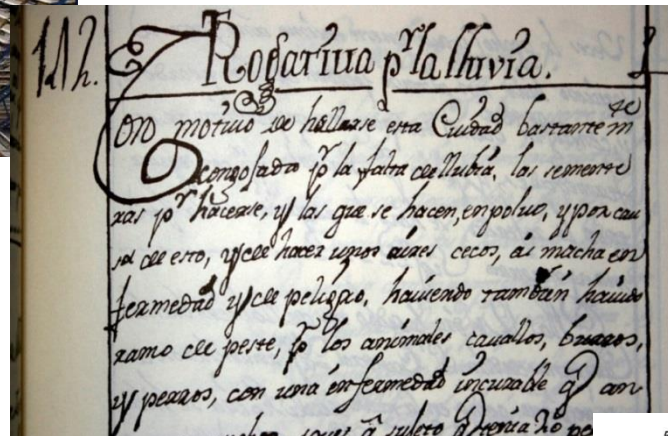 Rogativa pr la lluvia.
Con motivo de hallarse esta Ciudad bastantem te
acongojada pr la falta de llubia, las semente
ras pr hacerse, y las que se hacen, en polvo, y por cau
sa de esto, y de hacer unos aires cecos, ai mucha en
fermedad y de peligro, haviendo tambien havido
ramo de peste, pr los animales cavallos, burros,
y perros, con una enfermedad yncurable q an